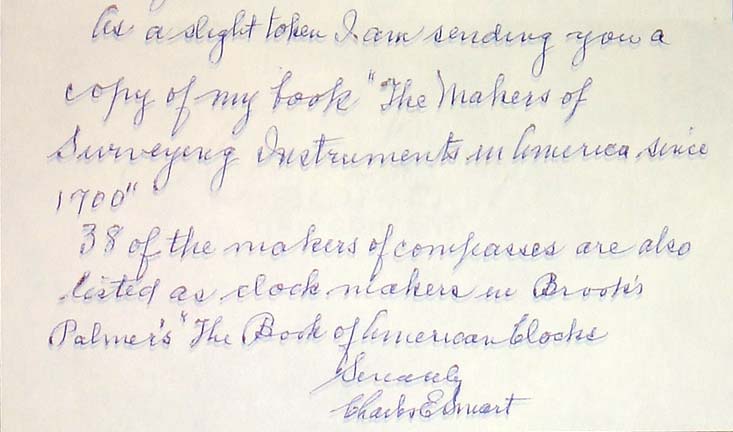 As a slight token I am sending you a
copy of my book "The Makers of
Surveying Instruments in America since
1700"
38 of the makers of compasses are also
listed as clock makers in Brook's
Palmer's "The Book of American Clocks
Sincerely
Charles E Smart